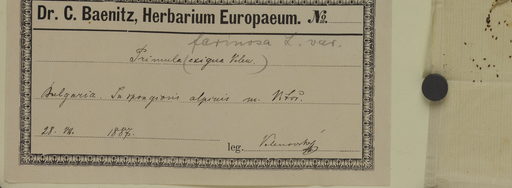 Dr. C. Baenitz, Herbarium Europaeum. No.
farinosa L. var.
Primula (exigua Velen.)
Bulgaria. In pascuis alpinis m. Vitoš.
28. VII. 1887.
leg. Velenovský